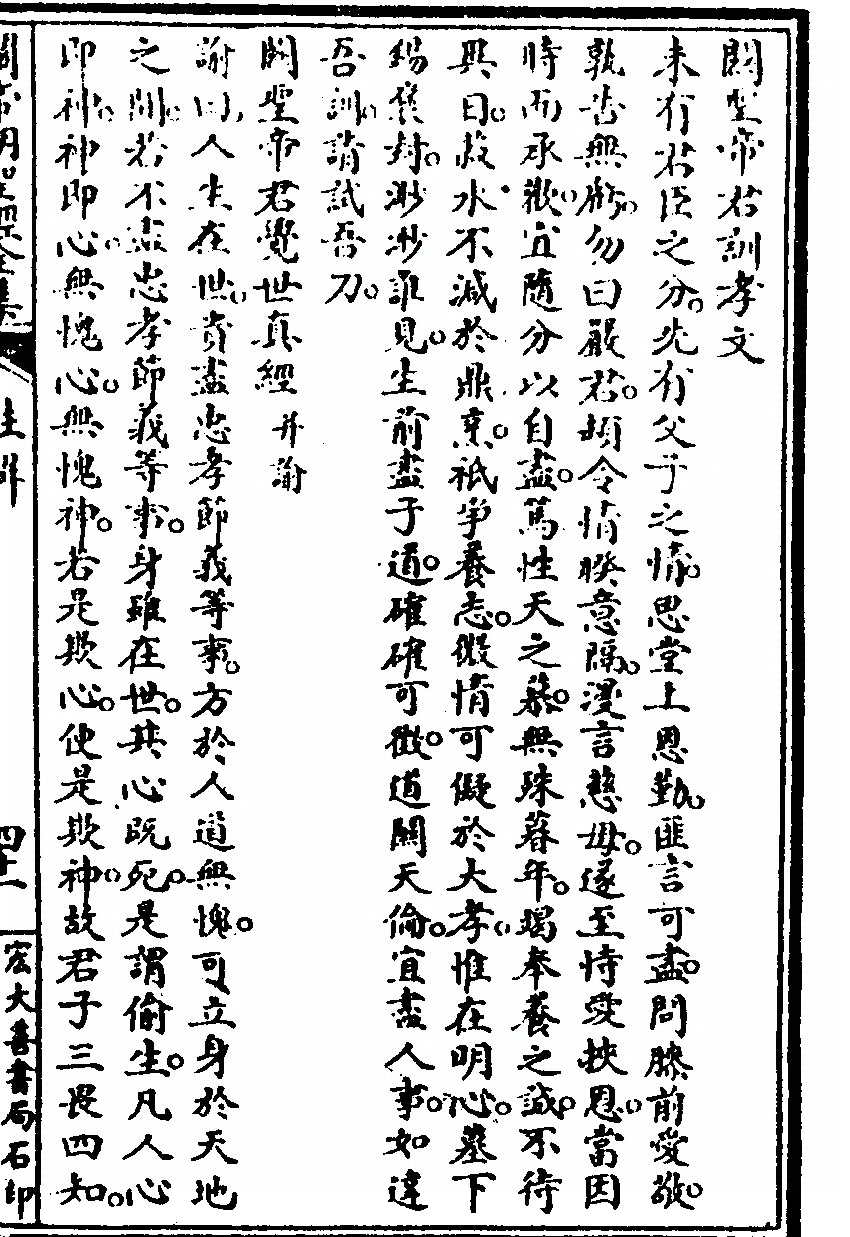 關聖帝君訓孝文
未有君臣之分。先有父子之情。思堂上恩勤。匪言可盡。問膝前愛敬。
孰豈無虧。勿曰嚴君。頓令情暌意隔。漫言慈毋。遂至恃愛挾恩。當因
時而承歡。宜隨分以自盡。篤性天之慕。無殊暮年。竭奉養之誠。不待
異日。菽水不減於鼎烹。祇爭養志。微情可儗於大孝。惟在明心。墓下
錫褒封。渺渺誰見。生前盡子道。確確可徵。道關天倫。宜盡人事。如違
吾訓。請試吾刀。
關聖帝君覺世真經 并諭
諭曰。人生在世。貴盡忠孝節義等事。方於人道無愧。可立身於天地
之間。若不盡忠孝節義等事。身雖在世。其心既死。是謂偷生。凡人心
即神。神即心。無愧心。無愧神。若是欺心。便是欺神。故君子三畏四知。
關帝明聖經全集 四十一 宏大善書局石印